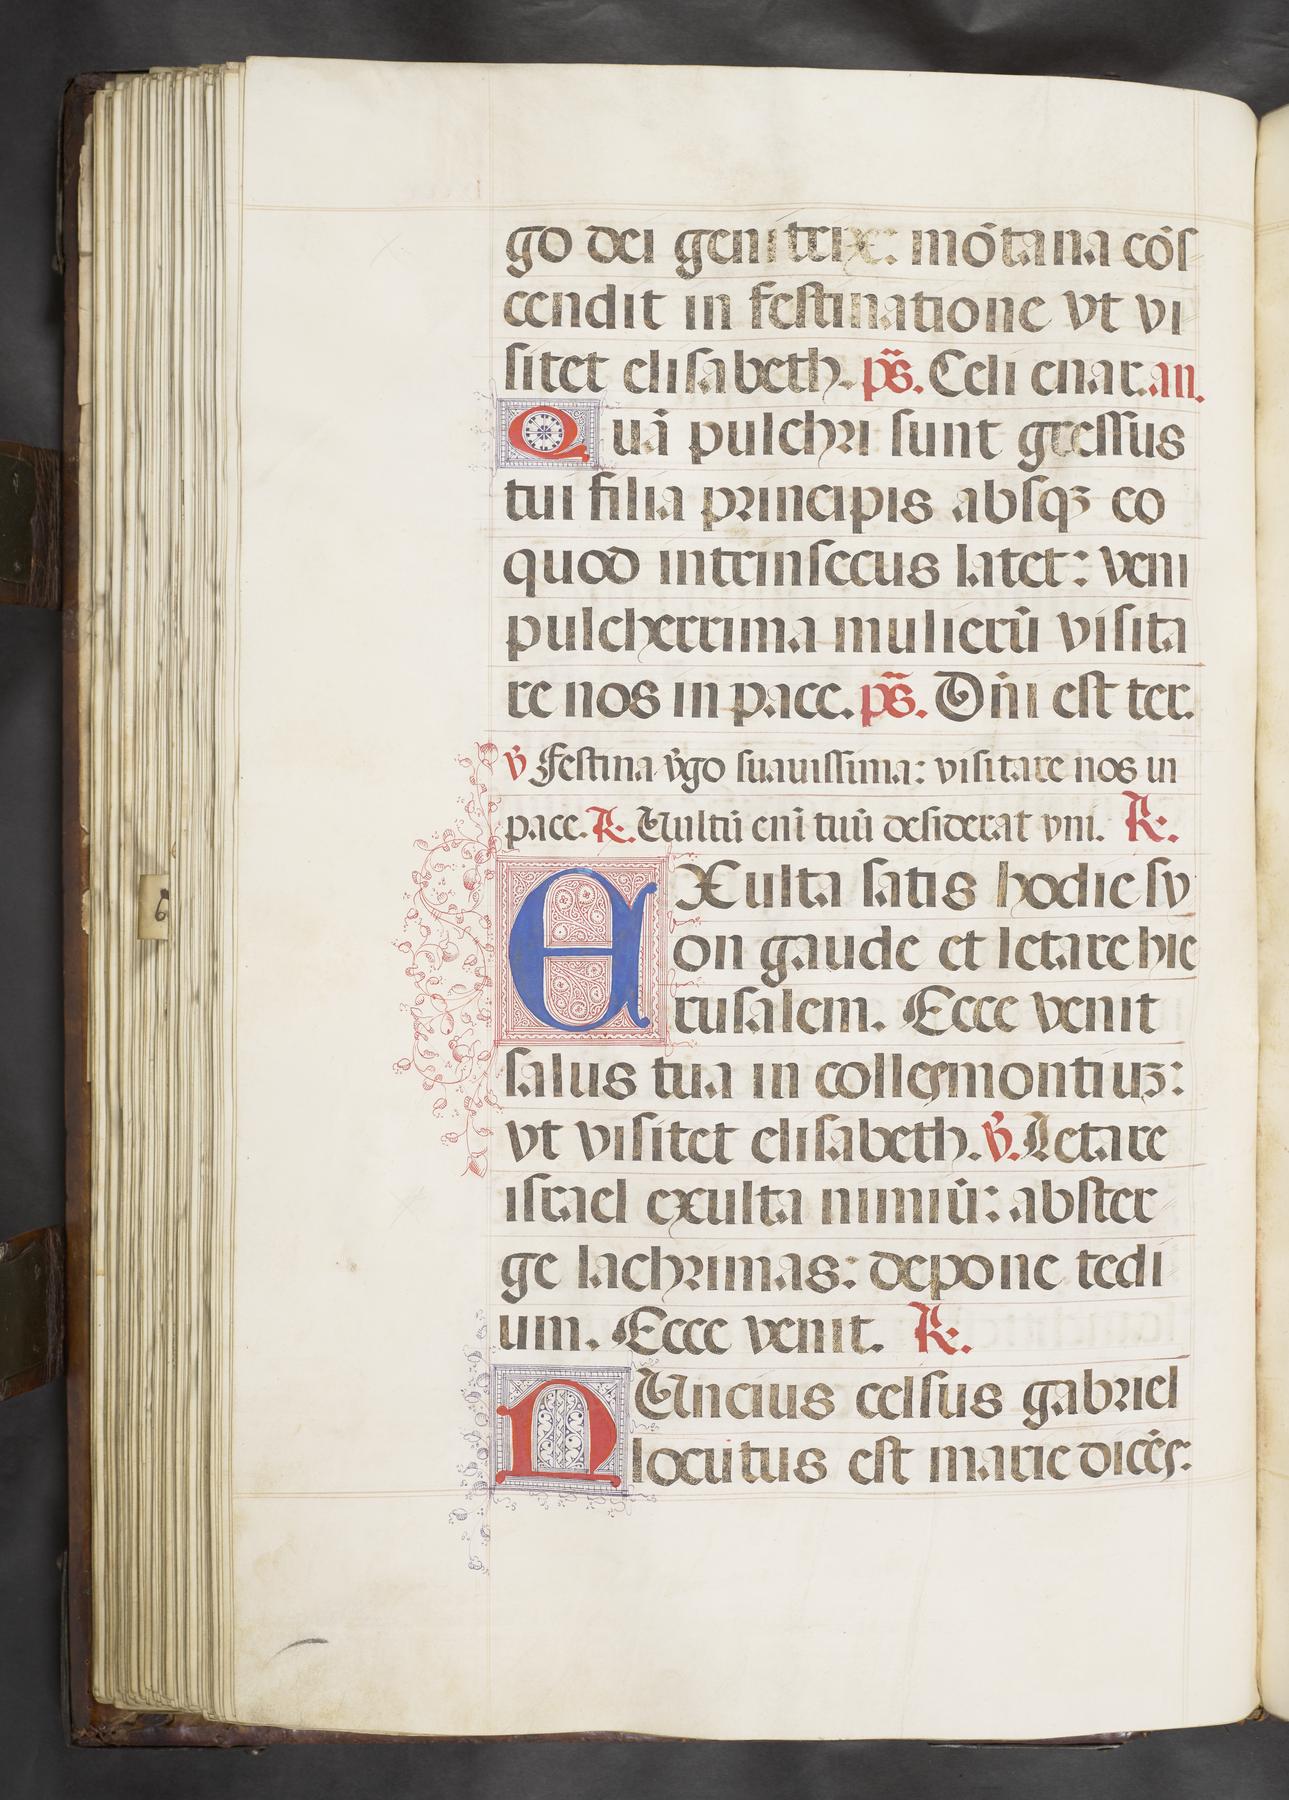 go dei genitrix: mōtana cōſ
cendit in feſtinatione vt vi
ſitet eliſabeth. pś. Celi enar. an.
Quā pulchri ſunt greſſus
tui filia principis abſqꝫ eo
quod intrinſecus latet: veni
pulcherrima mulierū viſita
re nos in pace. pś. Dn̄i eſt ter.
v̄ Feſtina v̄go ſuauiſſima: viſitare nos in
pace. ℞. Vultū eni᷑ tuū deſiderat vni. ℞.
EXulta ſatis hodie ſy
on gaude et letare hie
ruſalem. Ecce venit
ſalus tua in colles montiuꝫ:
vt viſitet eliſabeth. v̄. Letare
iſrael exulta nimiū: abſter
ge lachrimas: depone tedi
um. Ecce venit. ℞.
NUncius celſus gabriel
locutus eſt marie dicēs:
6